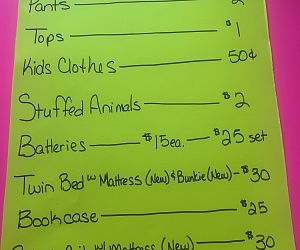 Pants — 2
Tops — $1
Kids Clothes — 50¢
Stuffed Animals — $2
Batteries — $15ea. — $25 set
Twin Bed w Mattress (New) & Bunkie (New) - $30
Bookcase — $25
w/ Mattress (New) $30